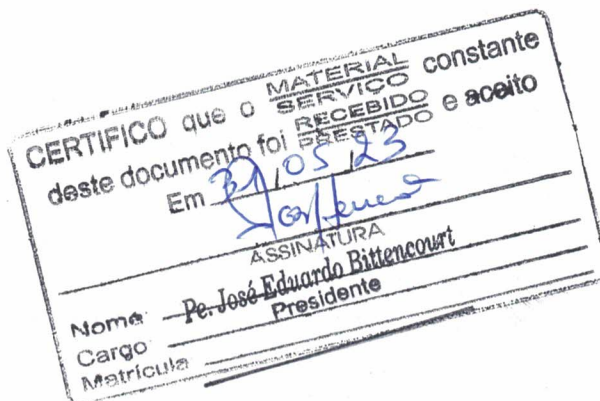 CERTIFICO que o MATERIAL constante
SERVIÇO
deste documento foi RECEBIDO e aceito
PRESTADO
Em 31/05/23
ASSINATURA
Nome Pe. José Eduardo Bittencourt
Cargo Presidente
Matrícula